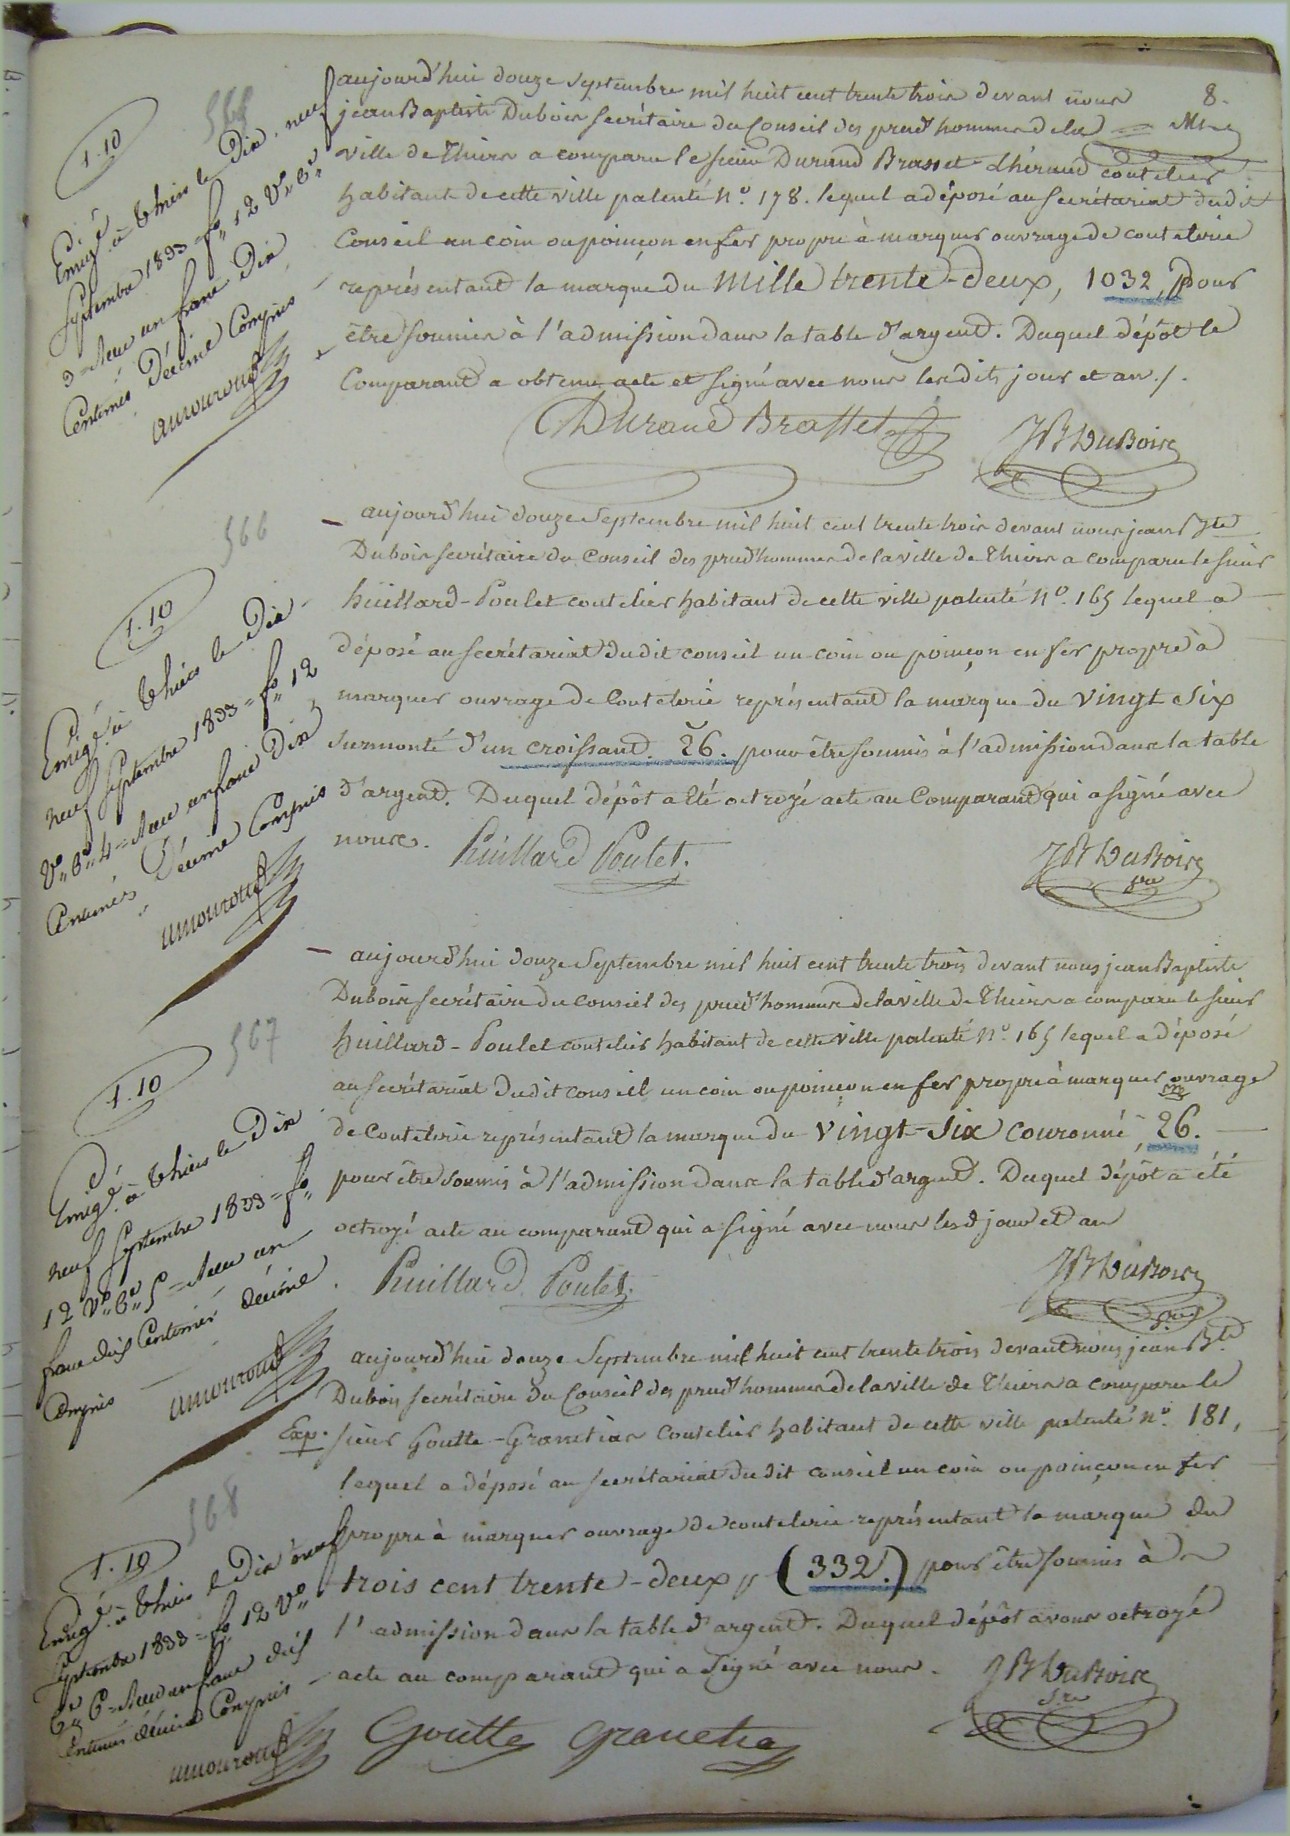 8.
565
1.10
Enrgé à Thiers le Dix neuf
Septembre 1833 = fo 12 Vo Ce
3 = Reçu un franc Dix
Centimes Décime Compris
amouroux
aujourd'hui douze Septembre mil huit cent trente trois devant nous
jean Baptiste Dubois Secrétaire du Conseil des prud'hommes de la
ville de Thiers a comparu le sieur Durand Brasset-Lhéraud coutelier
habitant de cette ville patenté No. 178. lequel a déposé au secrétariat dudit
Conseil un coin ou poinçon en fer propre à marquer ouvrage de coutelerie
représentant la marque du Mille trente-deux, 1032, pour
être soumis à l'admission dans la table d'argent. Duquel dépôt le
Comparant a obtenu acte et signé avec nous lesdits jour et an ./.
Durand Brasset
JB DuBois
566
1.10
Enrgé à Thiers le Dix
neuf Septembre 1833 = fo 12
Vo Ce 4 = Reçu un franc Dix
Centimes Décime Compris
amouroux
aujourd'hui douze Septembre mil huit cent trente trois devant nous jean Bte
Dubois secrétaire du Conseil des prud'hommes de la ville de Thiers a comparu le sieur
huillard-Poulet coutelier habitant de cette ville patenté No. 165 lequel a
déposé au secrétariat dudit conseil un coin ou poinçon en fer propre à
marquer ouvrage de Coutelerie représentant la marque du vingt six
surmonté d'un croissant. 26. pour être soumis à l'admission dans la table
d'argent. Duquel dépôt a été octroyé acte au Comparant qui a signé avec
nous.
huillard Poulet.
JB DuBois
Sre
567
1.10
Enrgé à Thiers le Dix
neuf Septembre 1833 = fo
12 Vo Ce 5 = Reçu un
franc dix Centimes décime
Compris
amouroux
aujourd'hui douze Septembre mil huit cent trente trois devant nous jean Baptiste
Dubois secrétaire du Conseil des prud'hommes de la ville de Thiers a comparu le sieur
huillard-Poulet coutelier habitant de cette ville patenté No. 165 lequel a déposé
au secrétariat dudit conseil un coin ou poinçon en fer propre à marquer ouvrage
de Coutelerie représentant la marque du vingt-Six couronné, 26.
pour être soumis à l'admission dans la table d'argent. Duquel dépôt a été
octroyé acte au comparant qui a signé avec nous lesd jour et an
huillard Poulet.
JB DuBois
Sre
568
1.10
Enrgé à Thiers le Dix neuf
Septembre 1833 = fo 12 Vo
Ce 6 = Reçu un franc dix
Centimes décime Compris
amouroux
aujourd'hui douze Septembre mil huit cent trente trois devant nous jean Bte
Dubois secrétaire du Conseil des prud'hommes de la ville de Thiers a comparu le
Exp. sieur Goutte-Granetias Coutelier habitant de cette ville patenté No. 181,
lequel a déposé au secrétariat dudit conseil un coin ou poinçon en fer
propre à marquer ouvrage de coutelerie représentant la marque du
trois cent trente-deux (332.) pour être soumis à
l'admission dans la table d'argent. Duquel dépôt avons octroyé
acte au comparant qui a signé avec nous.
JB DuBois
Sre
Goutte granetia